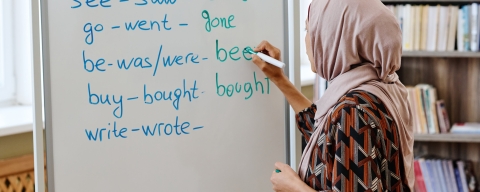 see - saw
go - went - gone
be - was/were - bee
buy - bought - bought
write - wrote -